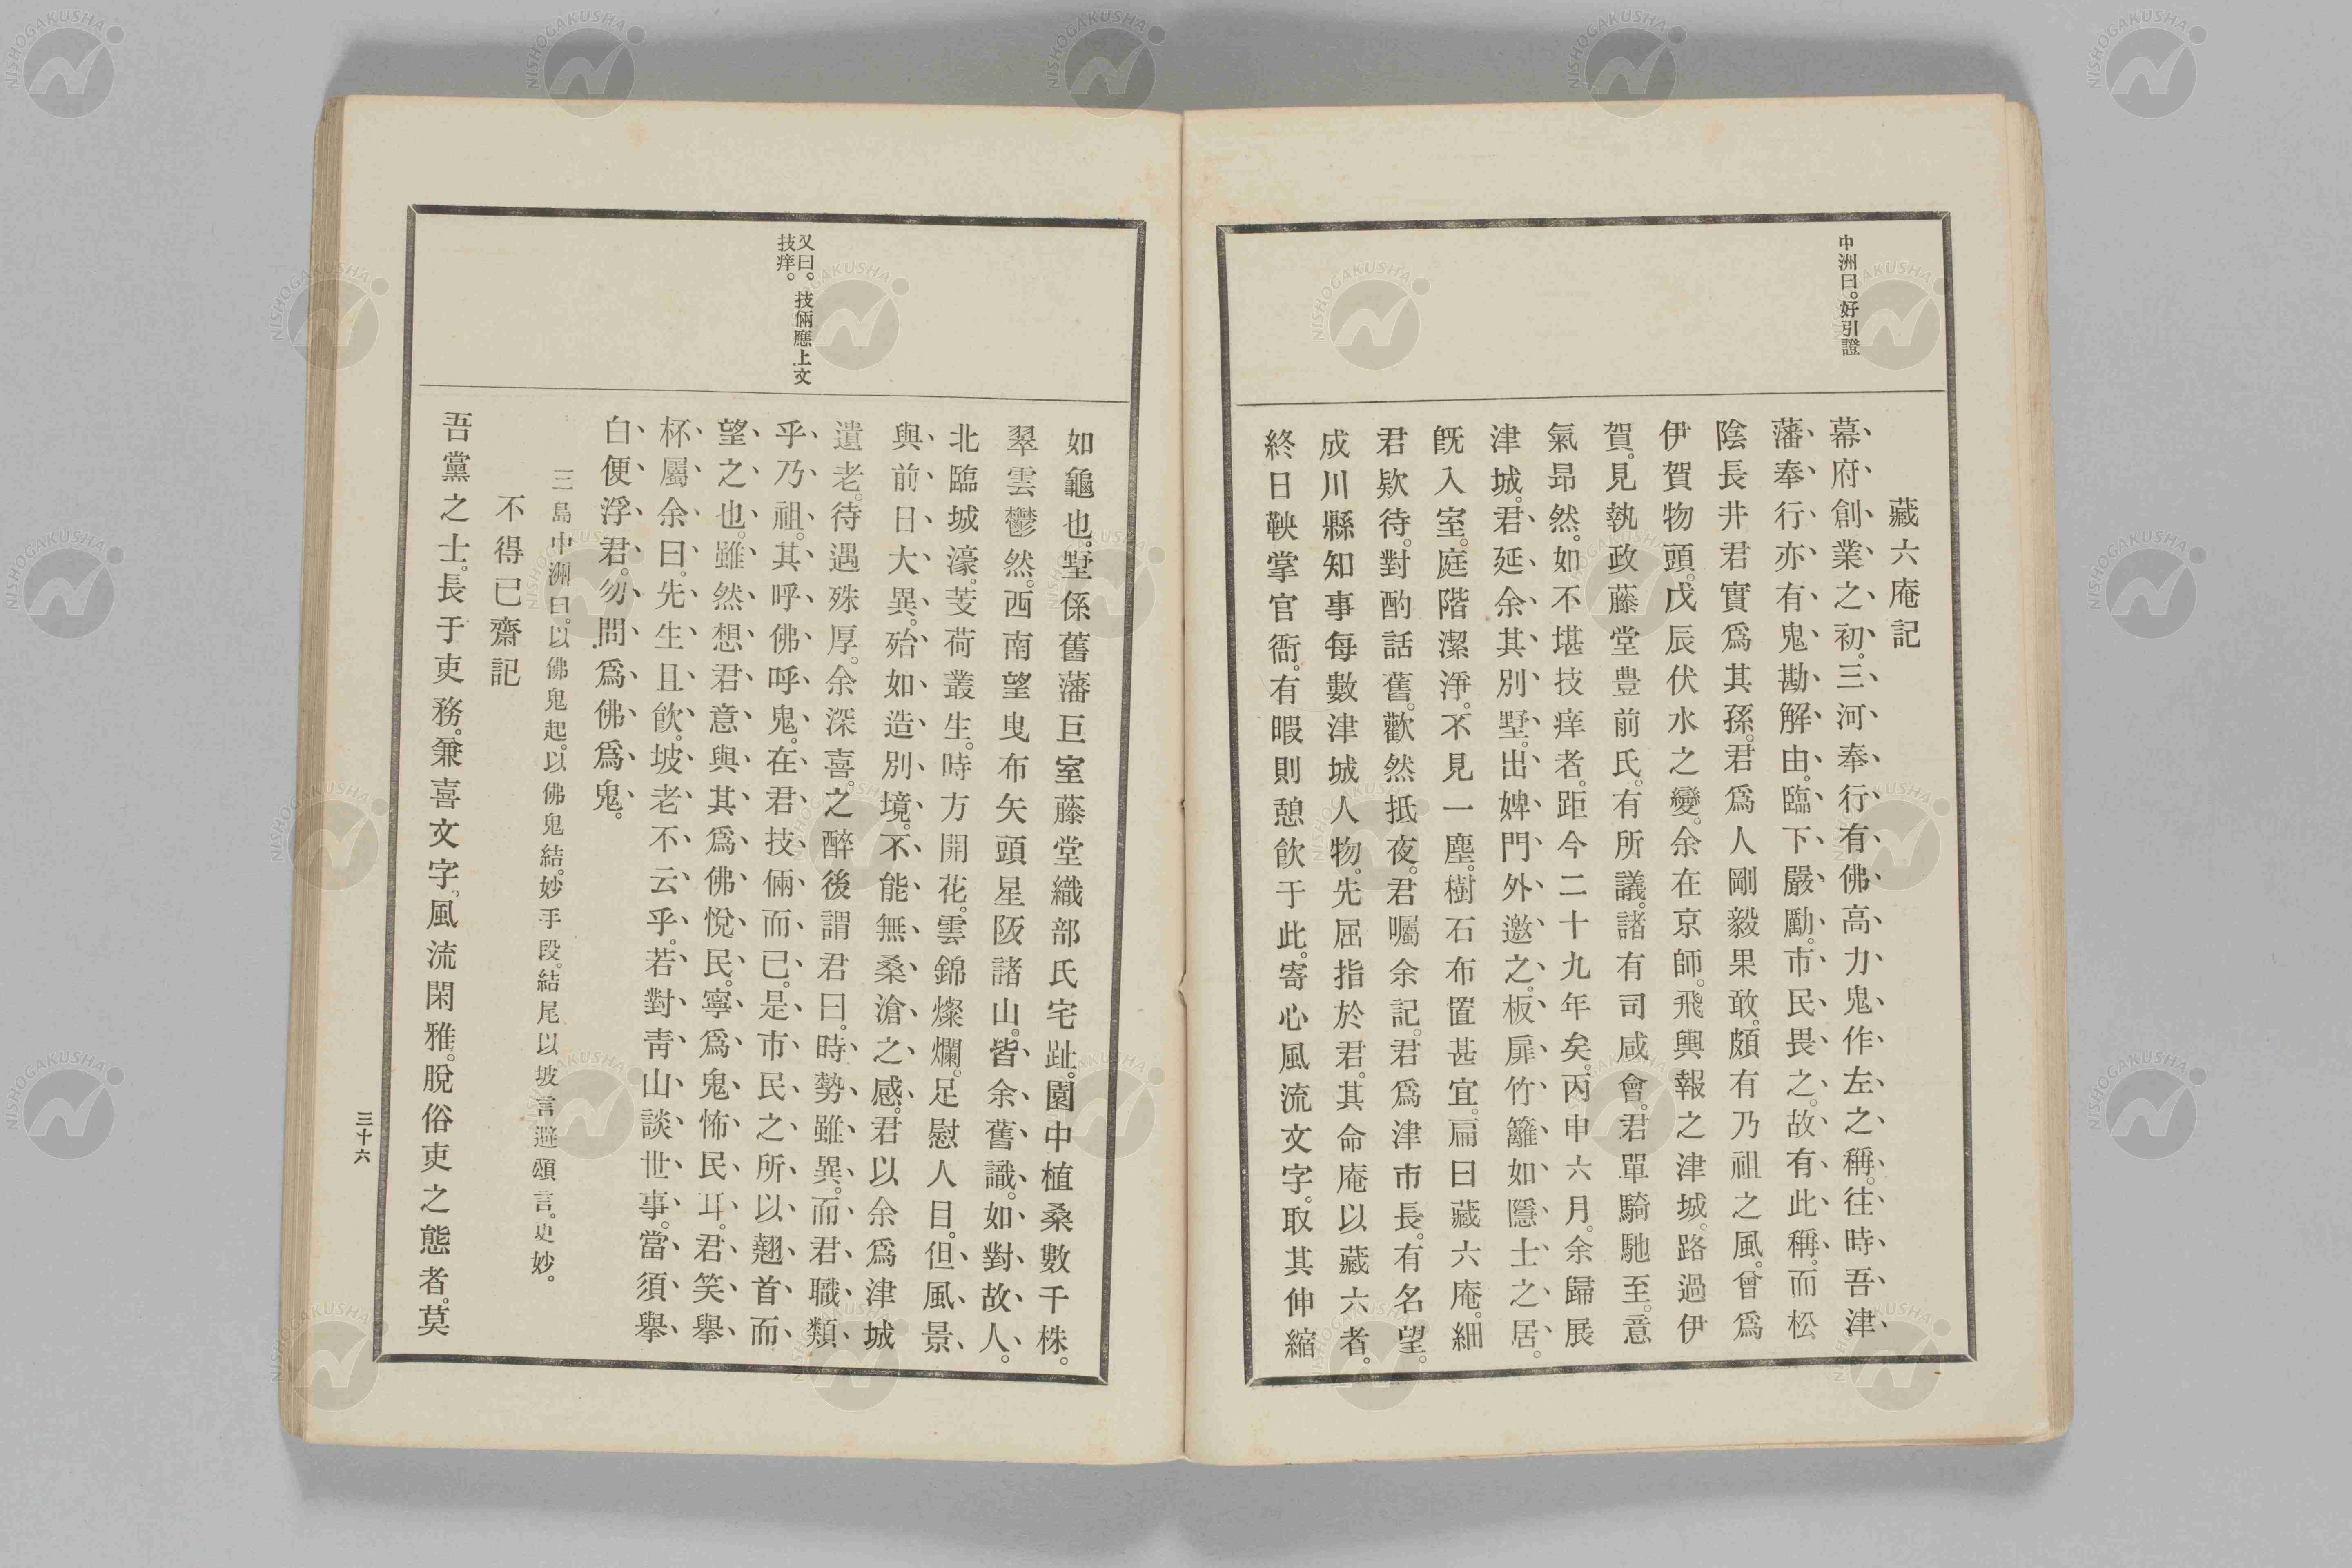 中洲曰。好引證
藏六庵記
幕府創業之初。三河奉行有佛高力鬼作左之稱。往時吾津
藩奉行亦有鬼勘解由。臨下嚴勵。市民畏之。故有此稱。而松
陰長井君實爲其孫。君爲人剛毅果敢。頗有乃祖之風。曾爲
伊賀物頭。戊辰伏水之變。余在京師。飛輿報之津城。路過伊
賀。見執政藤堂豊前氏。有所議。諸有司咸會。君單騎馳至。意
氣昂然。如不堪技痒者。距今二十九年矣。丙申六月。余歸展
津城。君延余其別墅。出婢門外邀之。板扉竹籬如隱士之居。
既入室。庭階潔淨。不見一塵。樹石布置甚宜。扁曰藏六庵。細
君欵待。對酌話舊。歡然抵夜。君囑余記。君爲津市長。有名望。
成川縣知事每數津城人物。先屈指於君。其命庵以藏六者。
終日鞅掌官衙。有暇則憩飮于此。寄心風流文字。取其伸縮
又曰。技倆應上文
技痒。
如龜也。墅係舊藩巨室藤堂織部氏宅趾。園中植桑數千株。
翠雲鬱然。西南望曳布矢頭星阪諸山。皆余舊識。如對故人。
北臨城濠。芰荷叢生。時方開花。雲錦燦爛。足慰人目。但風景
與前日大異。殆如造別境。不能無桑滄之感。君以余爲津城
遺老。待遇殊厚。余深喜之。醉後謂君曰。時勢雖異。而君職類
乎乃祖。其呼佛呼鬼。在君技倆而已。是市民之所以翹首而
望之也。雖然想君意與其爲佛悅民。寧爲鬼怖民耳。君笑擧
杯屬余曰。先生且飮。坡老不云乎。若對靑山談世事。當須擧
白便浮君。勿問爲佛爲鬼。
三島中洲曰。以佛鬼起。以佛鬼結。妙手段。結尾以坡言避頌言。更妙。
不得已齋記
吾黨之士。長于吏務。兼喜文字。風流閑雅。脫俗吏之態者。莫
三十六